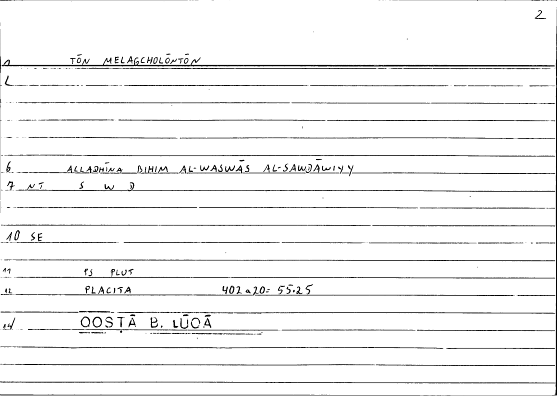 2
1 TŌN MELAGCHOLŌNTŌN
L
6 ALLADHĪNA BIHIM AL-WASWĀS AL-SAWDĀWIYY
7 NT S W D
10 SE
11 PS PLUT
12 PLACITA 402a20= 55.25
14/ QOSṬĀ B. LŪQĀ